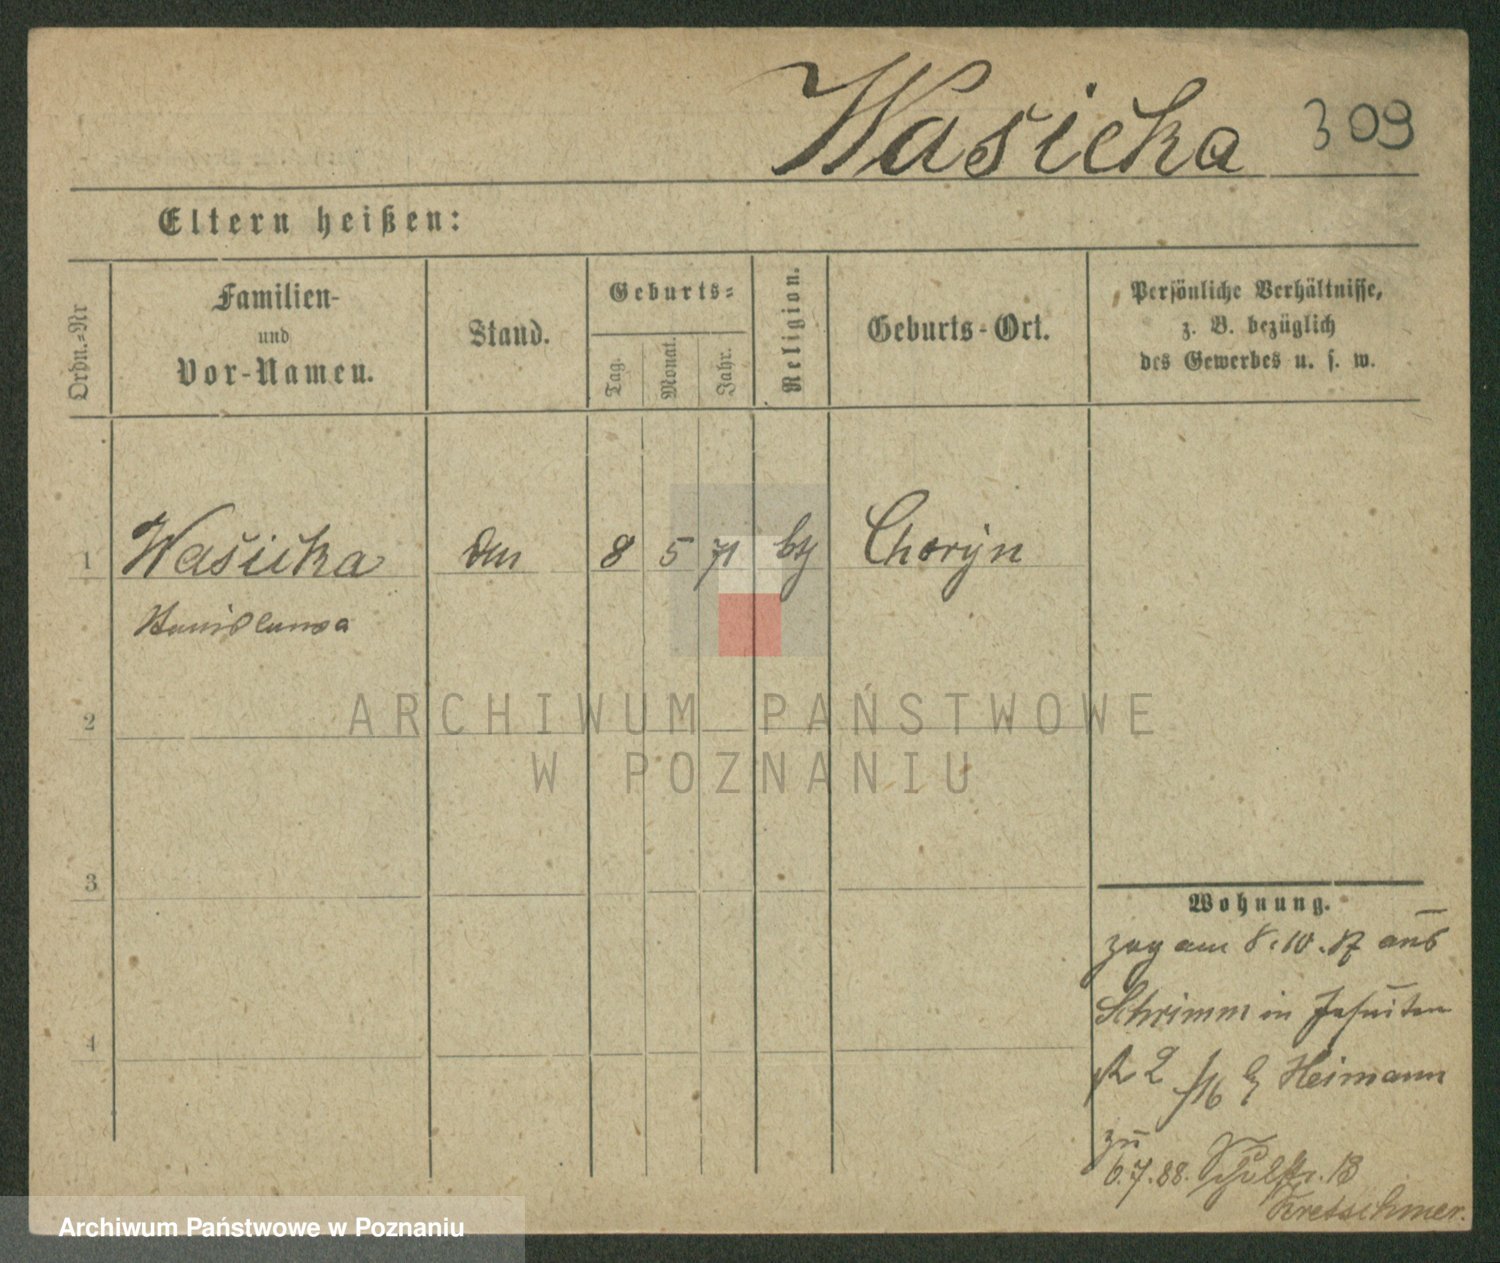 Wasicka 309
Eltern heißen:
Ordn.=Nr
Familien-
und
Vor-Namen.
Stand.
Geburts=
Tag.
Monat.
Jahr.
Religion.
Geburts-Ort.
Persönliche Verhältnisse,
z. B. bezüglich
des Gewerbes u. s. w.
1 Wasicka 8 5 71 Choryn
Stanislawa
2
ARCHIWUM PAŃSTWOWE
W POZNANIU
3
Wohnung.
zog am 8.10.87 aus
Schrimm in Jesuiten
str 2 Heimann
4
zu
6.7.88. Schulstr. 13
Kretschmer.
Archiwum Państwowe w Poznaniu